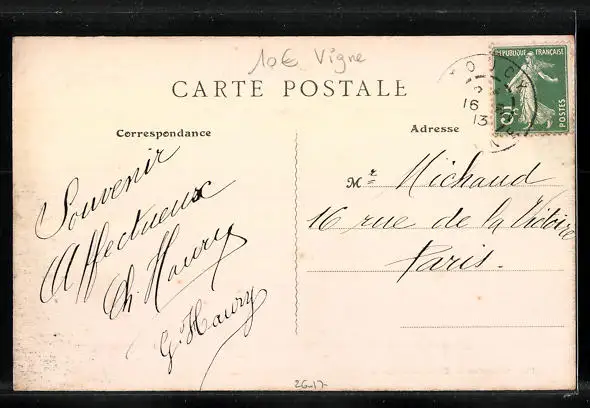 10€ Vigne
CARTE POSTALE
RÉPUBLIQUE FRANÇAISE
POSTES
5
16
13
Correspondance
Adresse
Souvenir
Affectueux
Ch. Haury
G. Haury
Mr Michaud
16 rue de la Victoire
Paris.
26-17-